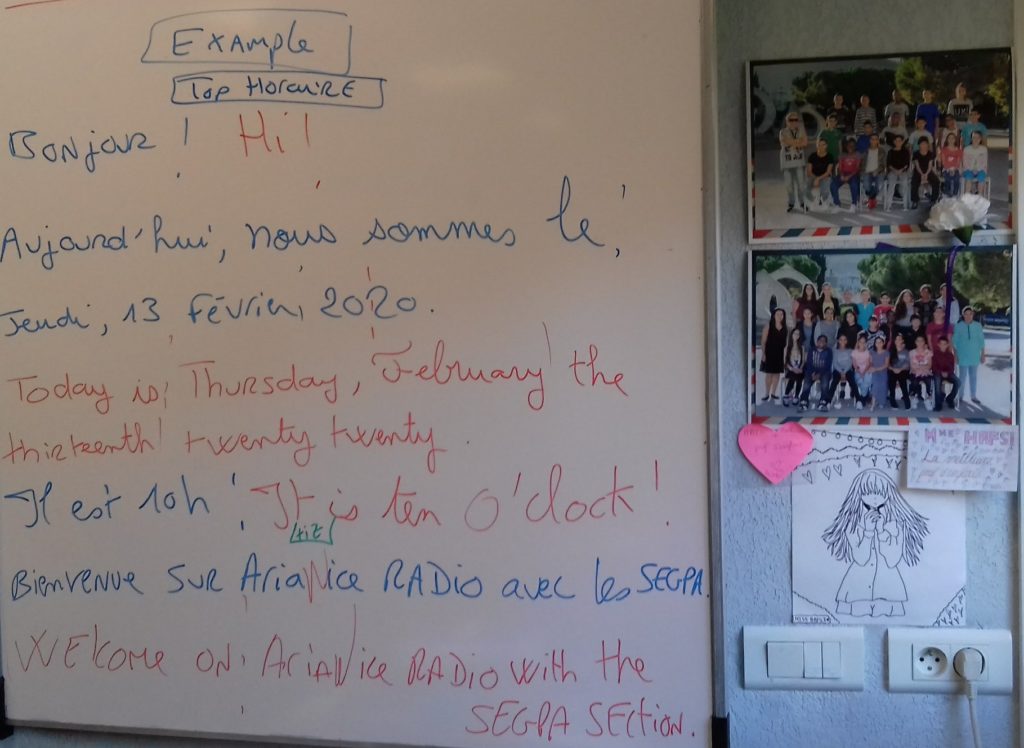 Example
Top HoraiRE
Bonjour ! Hi !
Aujourd'hui, nous sommes le,
Jeudi, 13 Février, 2020.
Today is, Thursday, February the
thirteenth twenty twenty.
Il est 10h ! It is ten O'clock !
tiz
Bienvenue SUR AriaNice RADio avec les SEGPA.
WElcome ON, AriaNice RADio with the
SEGPA SEction.
Mme HAFSI
La meilleure